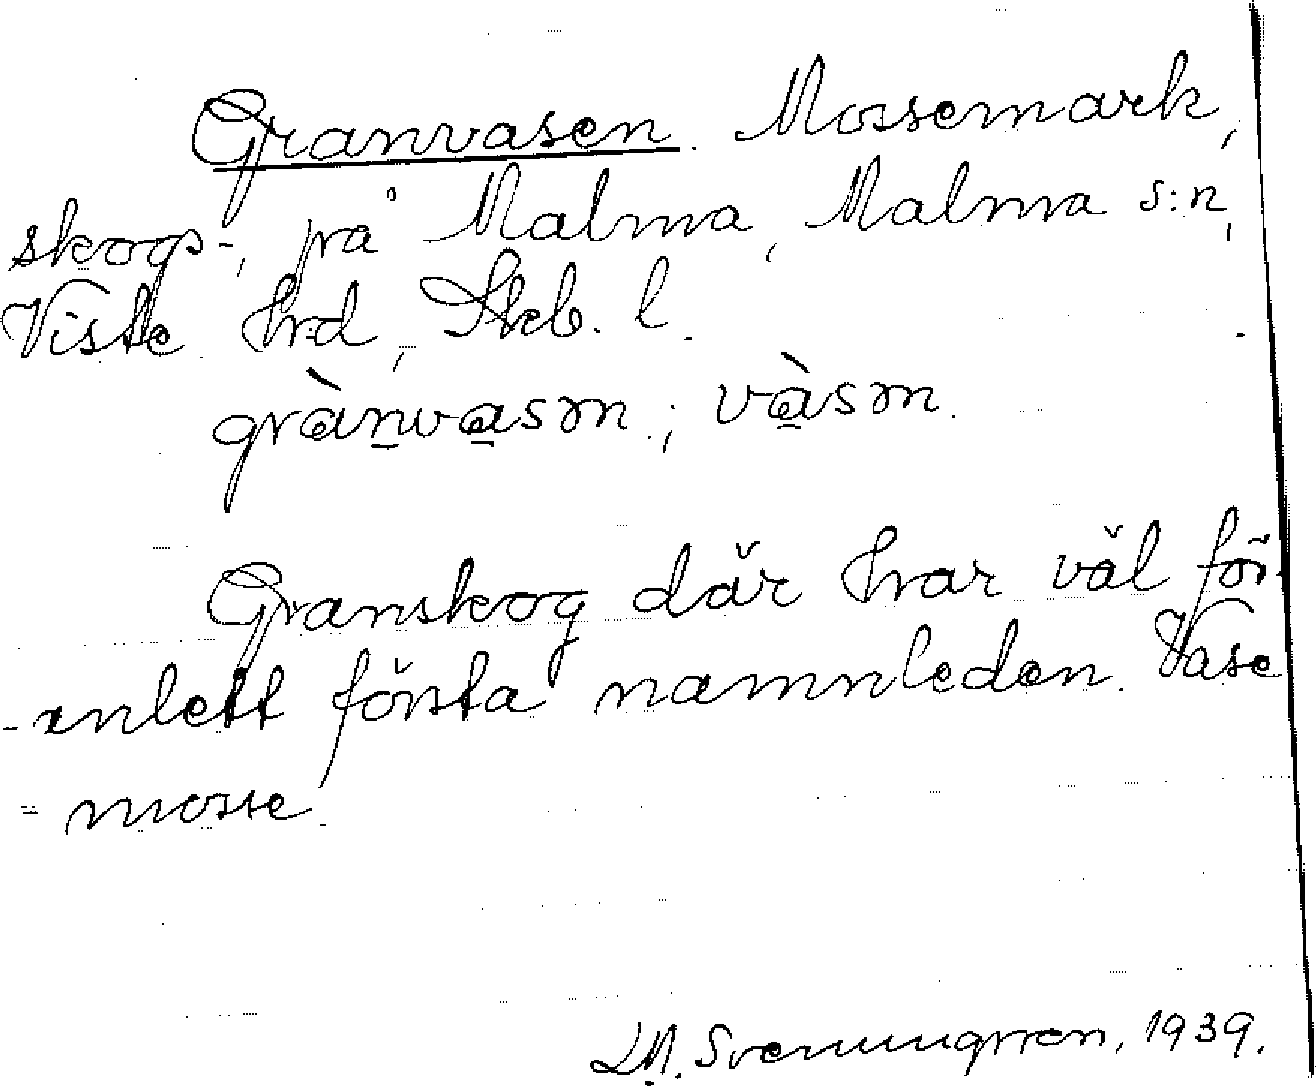 Granvasen. Mossemark,
skogs-, på Malma, Malma s:n,
Viste hrd, Skb. l.
grànvasən; vàsən.
Granskog där har väl för-
anlett första namnleden. Vase
= mosse.
1939.